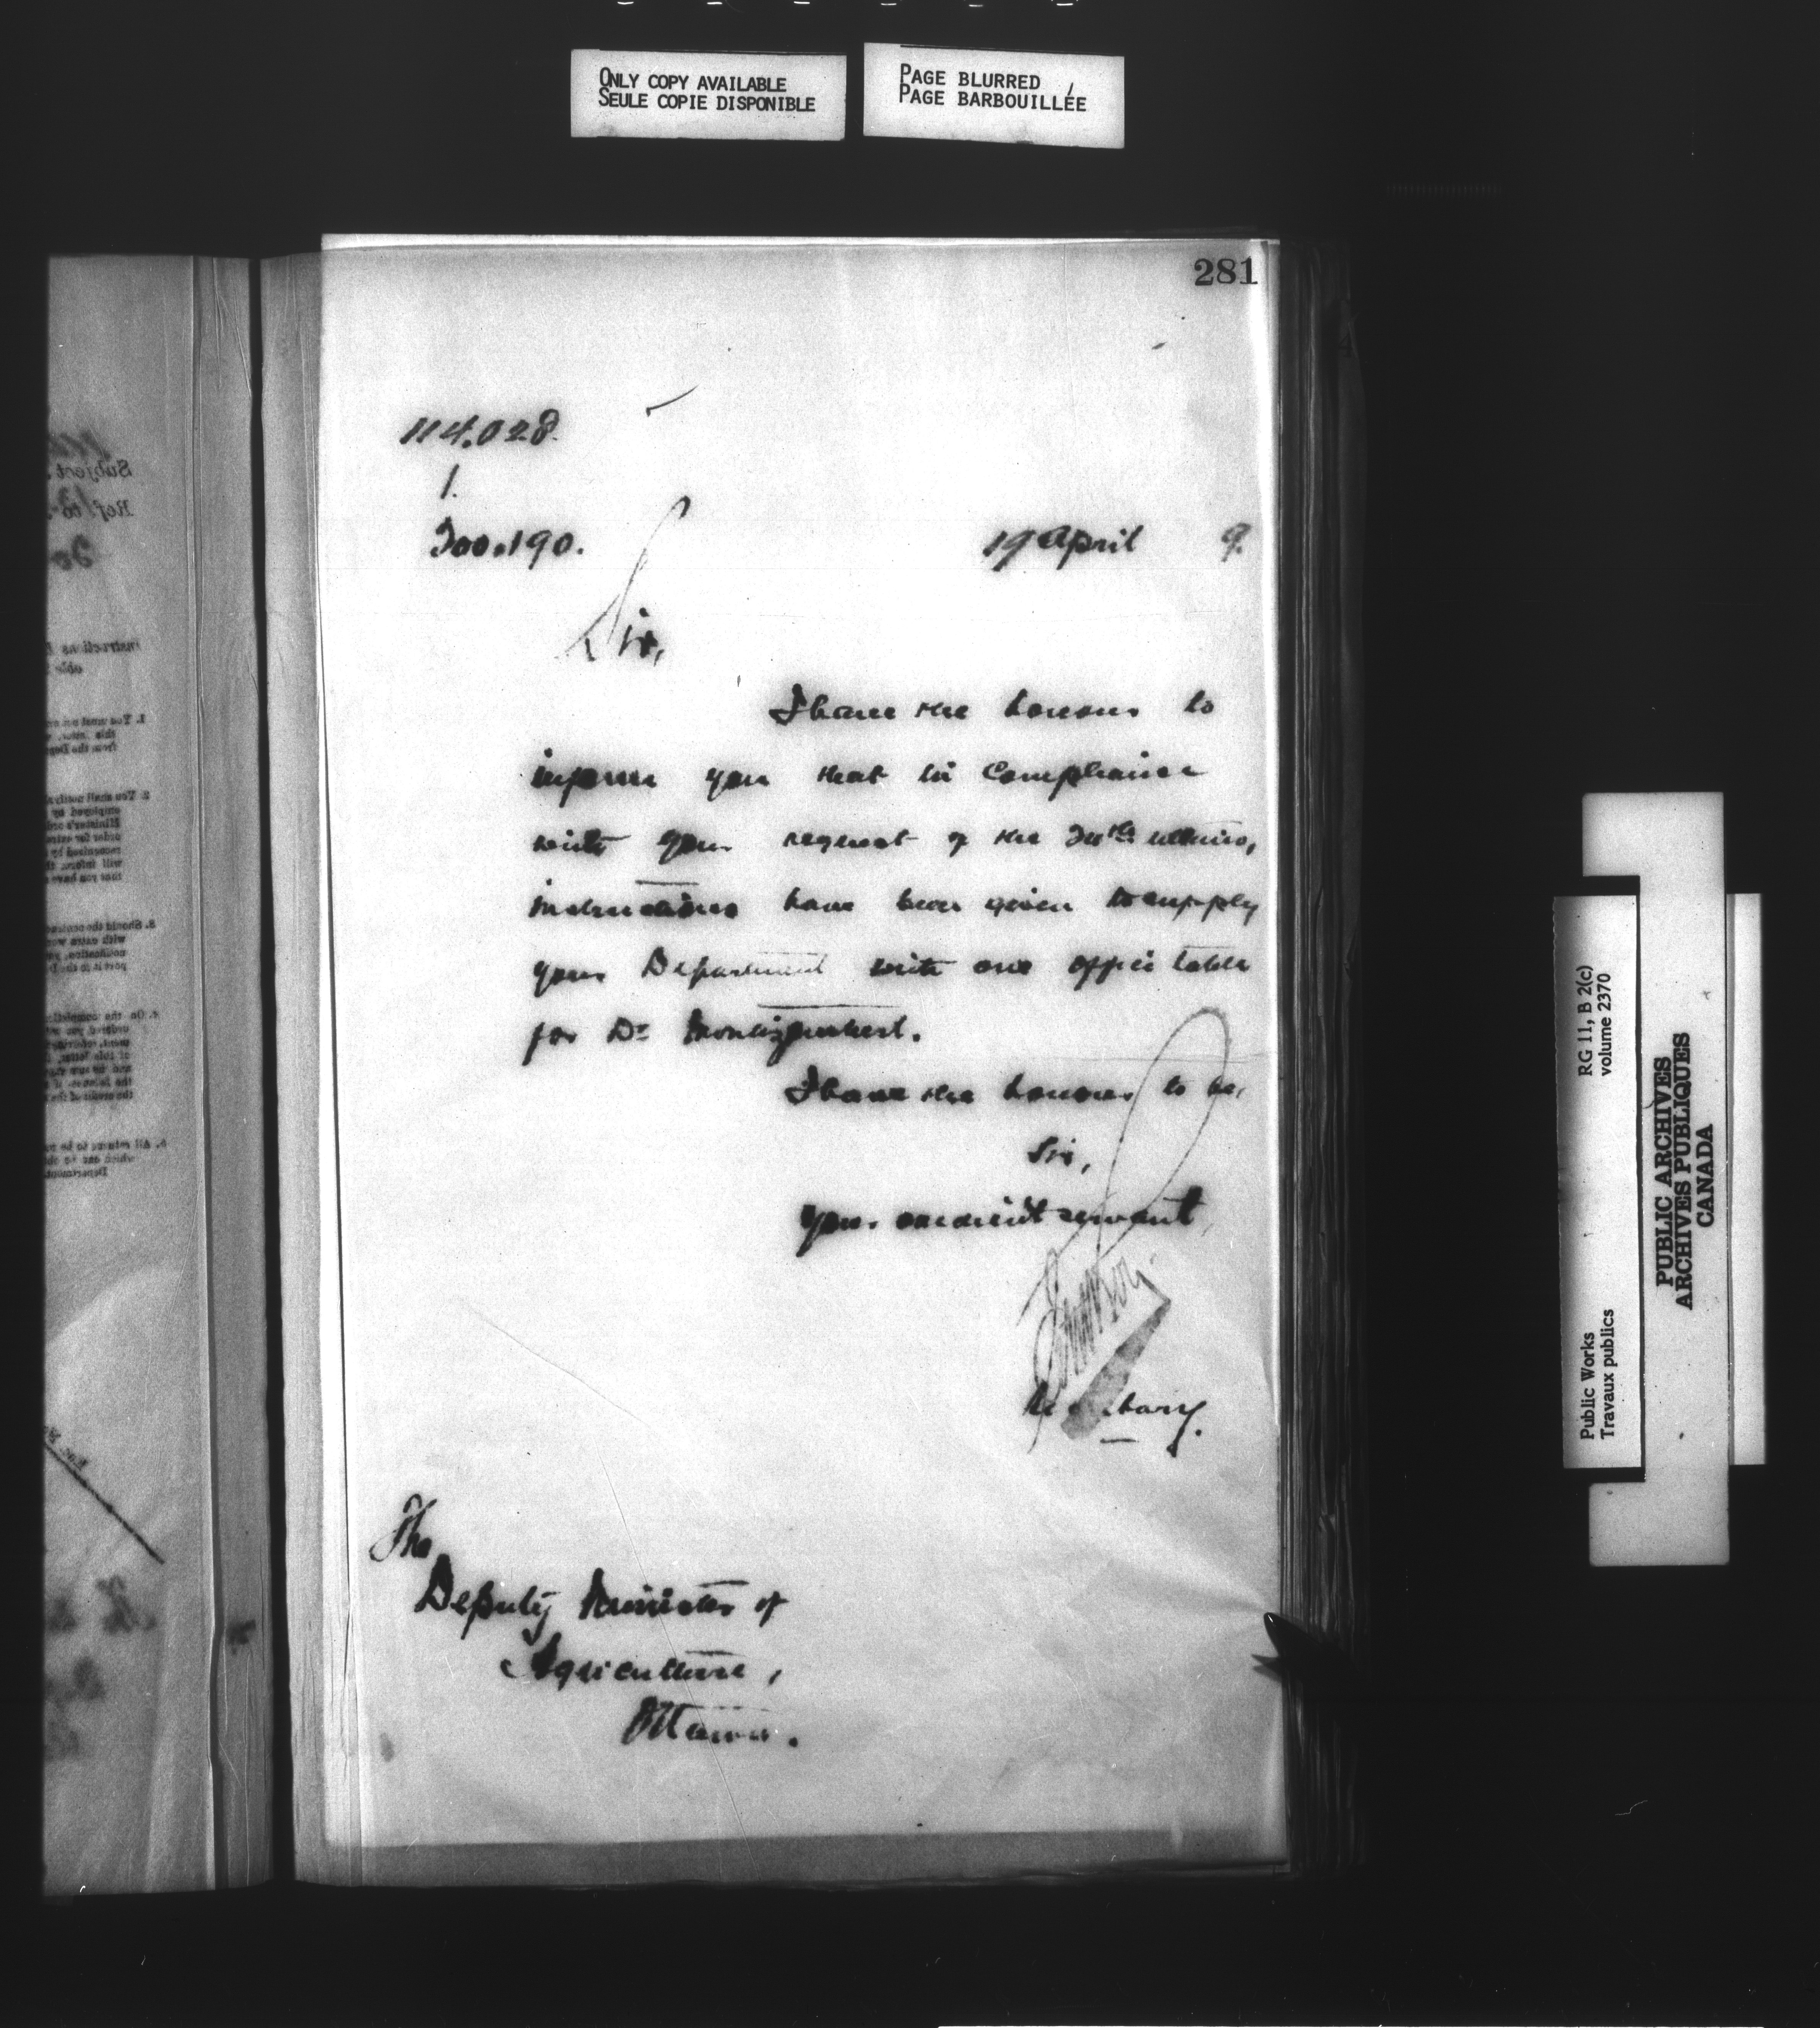 ONLY COPY AVAILABLE
SEULE COPIE DISPONIBLE
PAGE BLURRED
PAGE BARBOUILLÉE
281
114.028.
1.
200.190.
19 April 9.
Sir,
I have the honour to
inform you that in compliance
with your request of the ultimo,
instructions have been given to supply
your Department with one office table
for Dr Montizambert.
I have the honour to be,
Sir,
Your obedient servant,
Secretary.
The
Deputy Minister of
Agriculture,
Ottawa.
Public Works
Travaux publics
RG 11, B 2(c)
volume 2370
PUBLIC ARCHIVES
ARCHIVES PUBLIQUES
CANADA